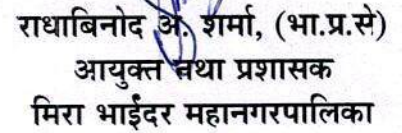 राधाबिनोद अ. शर्मा, (भा.प्र.से)
आयुक्त तथा प्रशासक
मिरा भाईंदर महानगरपालिका